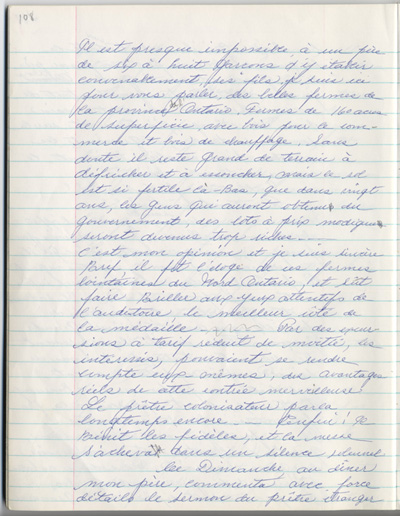 108
Il est presque impossible à un père
de six à huit garçons d'y établir
convenablement, ses fils, je suis ici
pour vous parler, des belles fermes de
la province Ontario. Fermes de 160 acres
de superficie, avec bois pour le com-
merce et bois de chauffage. Sans
doute il reste grand de terrain à
défricher et à essoucher, mais le sol
est si fertile là-Bas, que dans vingt
ans, les gens qui auront obtenu du
gouvernement, des lots à prix modiques
seront devenus trop riches...
C'est mon opinion et je suis sincère
Bref, il fit l'éloge de ces fermes
lointaines du Nord Ontario, et sût
faire Briller aux yeux attentifs de
l'auditoire, le meilleur côté de
la médaille — Par des excur-
sions à tarif réduit de moitié, les
intéressés, pouvaient se rendre
compte eux-mêmes, des avantages
réels de cette contrée merveilleuse
Le prêtre colonisateur parla
longtemps encore — Enfin! Il
Bénit les fidèles, et la messe
s'acheva dans un silence solennel
Ce Dimanche, au dîner
mon père, commenta avec force
détails le sermon du prêtre étranger